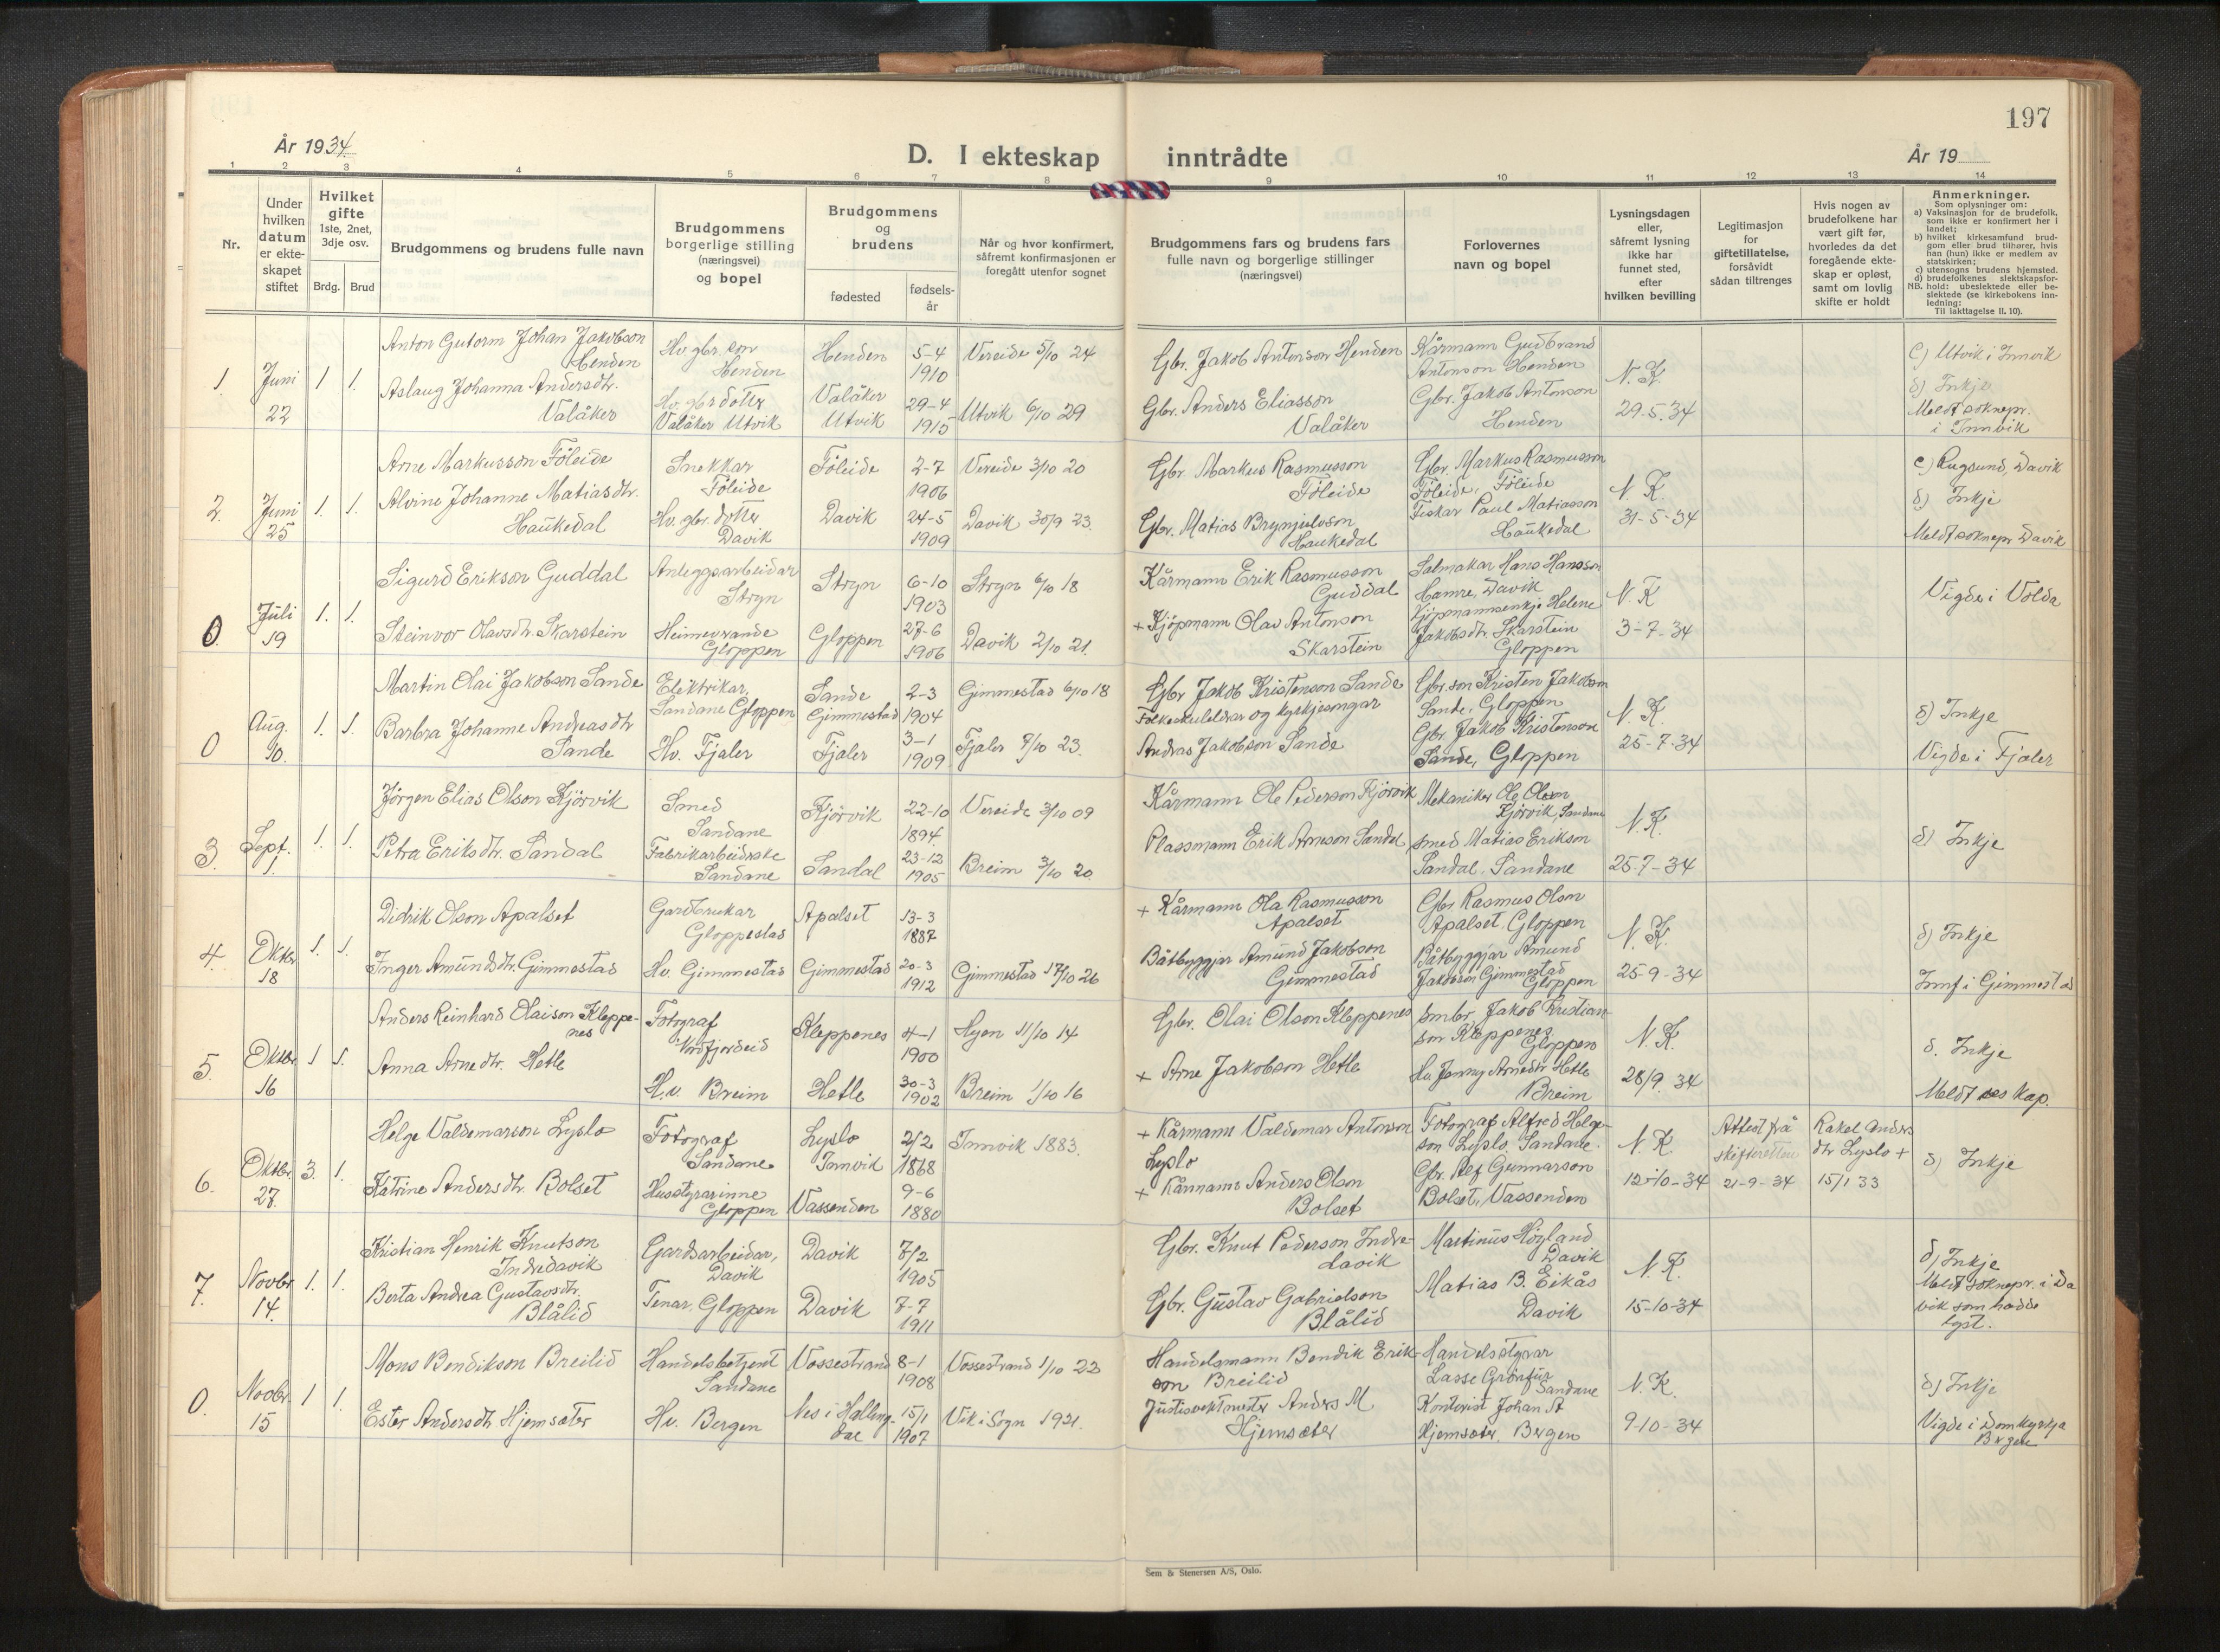 197
År 1934
D. I ekteskap inntrådte
År 19
1 2 3 4 5 6 7 8 9 10 11 12 13 14
Nr.
Under hvilken datum er ekte-skapet stiftet
Hvilket gifte 1ste, 2net, 3dje osv.
Brdg. Brud
Brudgommens og brudens fulle navn
Brudgommens borgerlige stilling (næringsvei) og bopel
Brudgommens og brudens
fødested
fødsels-år
Når og hvor konfirmert, såfremt konfirmasjonen er foregått utenfor sognet
Brudgommens fars og brudens fars fulle navn og borgerlige stillinger (næringsvei)
Forlovernes navn og bopel
Lysningsdagen eller, såfremt lysning ikke har funnet sted, efter hvilken bevilling
Legitimasjon for giftetillatelse, forsåvidt sådan tiltrenges
Hvis nogen av brudefolkene har vært gift før, hvorledes da det foregående ekte-skap er opløst, samt om lovlig skifte er holdt
Anmerkninger.
Som oplysninger om:
a) Vaksinasjon for de brudefolk, som ikke er konfirmert her i landet;
b) hvilket kirkesamfund brud-gom eller brud tilhører, hvis han (hun) ikke er medlem av statskirken;
c) utensogns brudens hjemsted.
d) brudefolkenes slektskapsfor-hold: ubeslektede eller be-slektede (se kirkebokens inn-ledning:
NB.
Til iakttagelse II. 10).
1. Juni 22 1 1.
Anton Gutorm Johan Jakobson Henden
Hv. gbr. son Henden
Henden
5-4 1910
Vereide 5/10 24
Gbr. Jakob Antonson Henden
Kårmann Gudbrand Antonson Henden
N. K.
29-5-34
C) Utvik i Innvik
Aslaug Johanna Andersdtr. Valåker
Hv. gbr dotter Valåker Utvik
Valåker Utvik
29-4 1915
Utvik 6/10 29
Gbr. Anders Eliasson Valåker
Gbr. Jakob Antonson Henden
d) Inkje
Meldt soknepr. i Innvik
2. Juni 25 1. 1.
Arne Markusson Föleide
Snekkar Föleide
Föleide
2-7 1906
Vereide 3/10 20
Gbr. Markus Rasmusson Föleide
Gbr. Markus Rasmusson Föleide, Föleide
N. K.
31-5-34
c) Rugsund, Davik
Alvine Johanne Matiasdtr. Haukedal
Hv. gbr. dotter Davik
Davik
24-5 1909
Davik 30/9 23.
Gbr. Matias Brynjulvson Haukedal
Fiskar Paul Matiasson Haukedal
d) Inkje
Meldt soknepr Davik
0. Juli 19 1. 1.
Sigurd Erikson Guddal
Anleggsarbeidar Stryn
Stryn
6-10 1903
Stryn 6/10 18
Kårmann Erik Rasmusson Guddal
Salmakar Hans Hansson Hamre, Davik
N. K
3-7-34
Vigde i Volda
Steinvor Olavsdtr. Skarstein
Heimeverande Gloppen
Gloppen
27-6 1906
Davik 2/10 21.
+ Kjöpmann Olav Antonson Skarstein
Kjöpmannsenkje Helene Jakobsdtr. Skarstein Gloppen
0 Aug. 10. 1. 1.
Martin Olai Jakobson Sande
Elektrikar, Sandane Gloppen
Sande Gimmestad
2-3 1904
Gimmestad 6/10 18
Gbr Jakob Kristenson Sande
Gbr. son Kristen Jakobson Sande, Gloppen
N. K.
25-7-34
d) Inkje
Barbra Johanne Andreasdtr Sande
Hv. Fjaler
Fjaler
3-1 1909
Fjaler 7/10 23.
Folkeskulelærar og kyrkjesongar Andreas Jakobson Sande
Gbr. Jakob Kristenson Sande, Gloppen
Vigde i Fjaler
3. Sept. 1. 1. 1.
Jörgen Elias Olson Kjörvik
Smed Sandane
Kjörvik
22-10 1894.
Vereide 3/10 09
Kårmann Ole Pederson Kjörvik
Mekaniker Ole Olson Kjörvik, Sandane
N. K.
25-7-34
d) Inkje
Petra Eriksdtr. Sandal
Fabrikarbeidrske Sandane
Sandal
23-12 1905
Breim 3/10 20
Plassmann Erik Arneson Sandal
Smed Matias Erikson Sandal, Sandane
4. Oktbr 18 1. 1.
Didrik Olson Apalset
Gardbrukar Gloppestad
Apalset
13-3 1887
+ Kårmann Ola Rasmusson Apalset
Gbr Rasmus Olson Apalset, Gloppen
N. K.
25-9-34
d) Inkje
Inger Amundsdtr. Gimmestad
Hv. Gimmestad
Gimmestad
20-3 1912
Gimmestad 17/10 26
Båtbyggjar Amund Jakobson Gimmestad
Båtbyggjar Amund Jakobson Gimmestad Gloppen
Innf i Gimmestad
5. Oktbr. 16 1 1.
Anders Reinhard Olaison Kleppe-nes
Fotograf Nordfjordeid
Kleppenes
4-1 1900
Hyen 11/10 14
Gbr. Olai Olson Kleppenes
Smbr. Jakob Kristian-son Kleppenes Gloppen
N. K.
28/9 34
d. Inkje
Anna Arnedtr. Hetle
H.v. Breim
Hetle
30-3 1902
Breim 1/10 16
+ Arne Jakobson Hetle
Hv Jenny Arnedtr Hetle Breim
Meldt res kap.
6. Oktbr. 27. 3. 1.
Helge Valdemarson Lyslo
Fotograf Sandane
Lyslo Innvik
2/2 1868
Innvik 1883.
+ Kårmann Valdemar Antonson Lyslo
Fotograf Alfred Helge-son Lyslo, Sandane.
N. K
12-10-34
Attest frå skifteretten 21-9-34
Rakel Anders dtr Lyslo + 15/1 33
d) Inkje
Katrine Andersdtr. Bolset
Husstyrarinne Gloppen
Vassenden
9-6 1880
+ Kårmann Anders Olson Bolset
Gbr. Alf Gunnarson Bolset, Vassenden
7. Novbr 14. 1. 1.
Kristian Henrik Knutson Indredavik
Gardsarbeidar, Davik
Davik
7/2 1905
Gbr. Knut Pederson Indre-davik
Martinus Högland Davik
N. K.
15-10-34
d) Inkje
Berta Andrea Gustavsdtr. Blålid
Tenar, Gloppen
Davik
7-7 1911
Gbr. Gustav Gabrielson Blålid
Matias B. Eikås Davik
Meldt soknepr. i Da vik som hadde lyst.
0. Novbr. 15 1 1.
Mons Bendikson Breilid
Handelsbetjent Sandane
Vossestrand
8-1 1908
Vossestrand 1/10 22
Handelsmann Bendik Erik-son Breilid
Handelsstyrar Lasse Grönfur Sandane
N. K.
9-10-34
d) Inkje
Ester Andersdtr Hjemsæter
Hv. Bergen
Nes i Halling-dal
15/1 1907
Vik i Sogn 1921.
Justisvektmester Anders M Hjemsæter
Kontorist Johan St Hjemsæter, Bergen
Vigde i Domkyrkja Bergen
Sem & Stenersen A/S, Oslo.